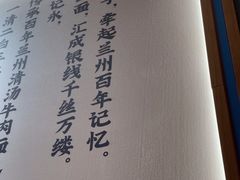 ，牵起兰州百年记忆。
面，汇成银线千丝万缕。
记永，
传承百年兰州清汤牛肉面
一清二白